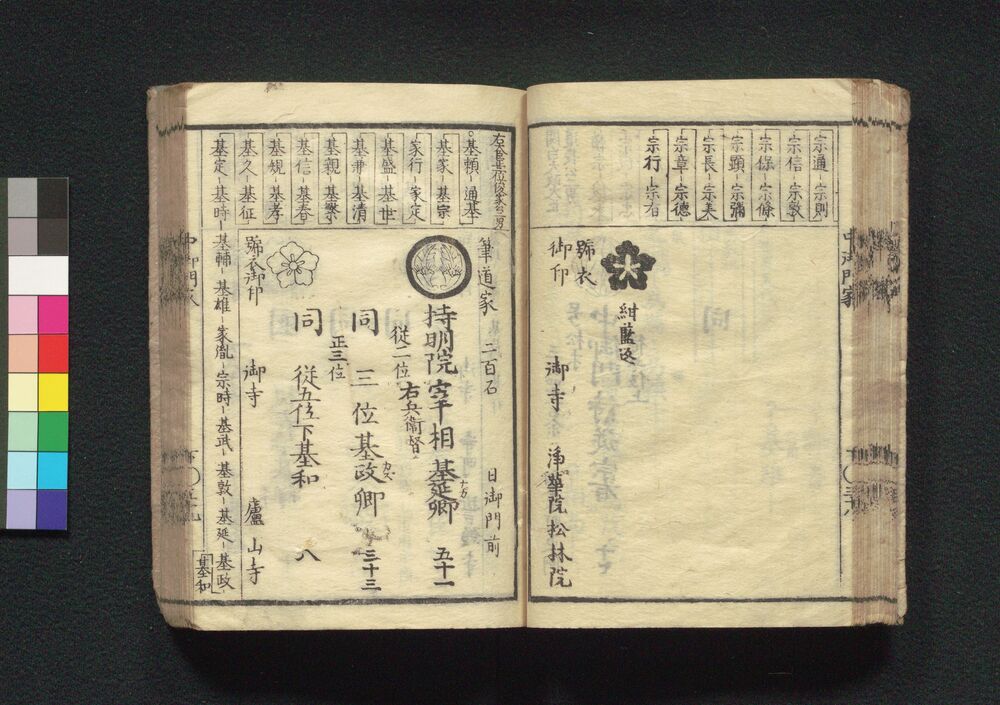 宗通-宗則
宗信-宗敦
宗保-宗條
宗顕-宗彌
宗長-宗美
宗章-宗徳
宗行-宗有
號衣
御印
紺藍返
御寺
浄華院松林院
中御門家
基頼-通基
基家-基宗
家行-家定
基盛-基世
基清
基親-基繁
基信-基春
基規-基孝
基久-基征
基定-基時-基輔-基雄-家胤-宗時-基武-基敦-基延-基政
基和
筆道家
二百石
日御門前
持明院宰相基延卿
五十一
従二位
右兵衛督
同
三位基政卿
三十三
正三位
同
従五位下基和
八
號衣御印
御寺
廬山寺